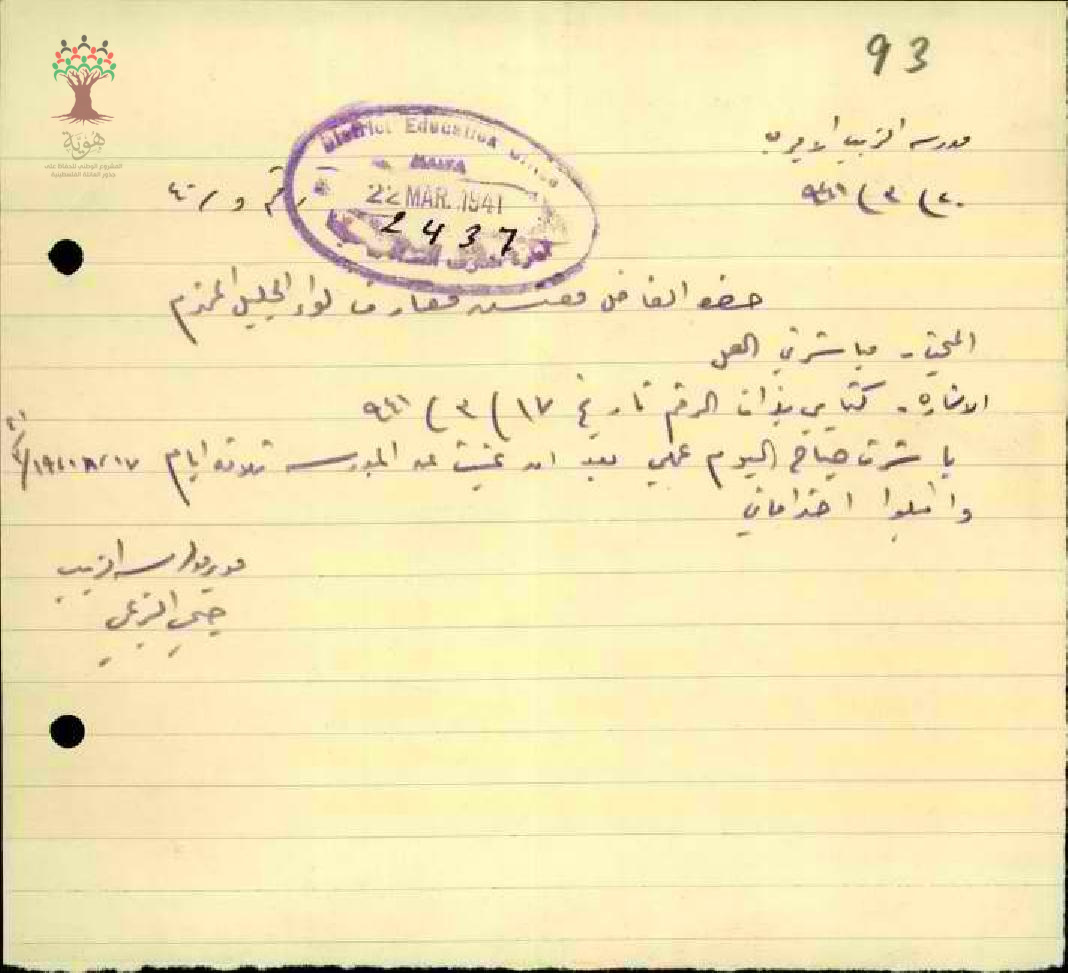 93
هوية
المشروع الوطني للحفاظ على
جذور العائلة الفلسطينية
مدرسة الزيب الاميرية
٢٠ / ٣ / ٩٤١
رقم و / ٤٠
District Education Office
HAIFA
22 MAR. 1941
2437
حضرة الفاضل مفتش معارف لواء الجليل المحترم
المبحث - مباشرتي العمل
الاشارة - كتابي بذات الرقم تاريخ ١٧ / ٣ / ٩٤١
باشرت صباح اليوم عملي بعد ان غبت عن المدرسة ثلاثة ايام ١٧ / ١٨ / ١٩ /
واقبلوا احتراماتي
مدير مدرسة الزيب